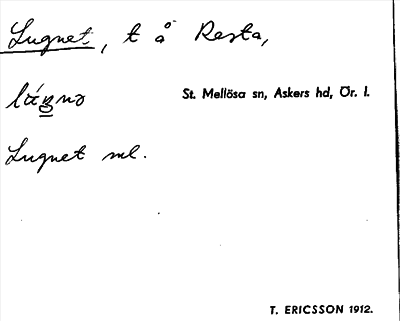 Lugnet, t å Resta,
St. Mellösa sn, Askers hd, Ör. l.
Lugnet ml.
T. ERICSSON 1912.